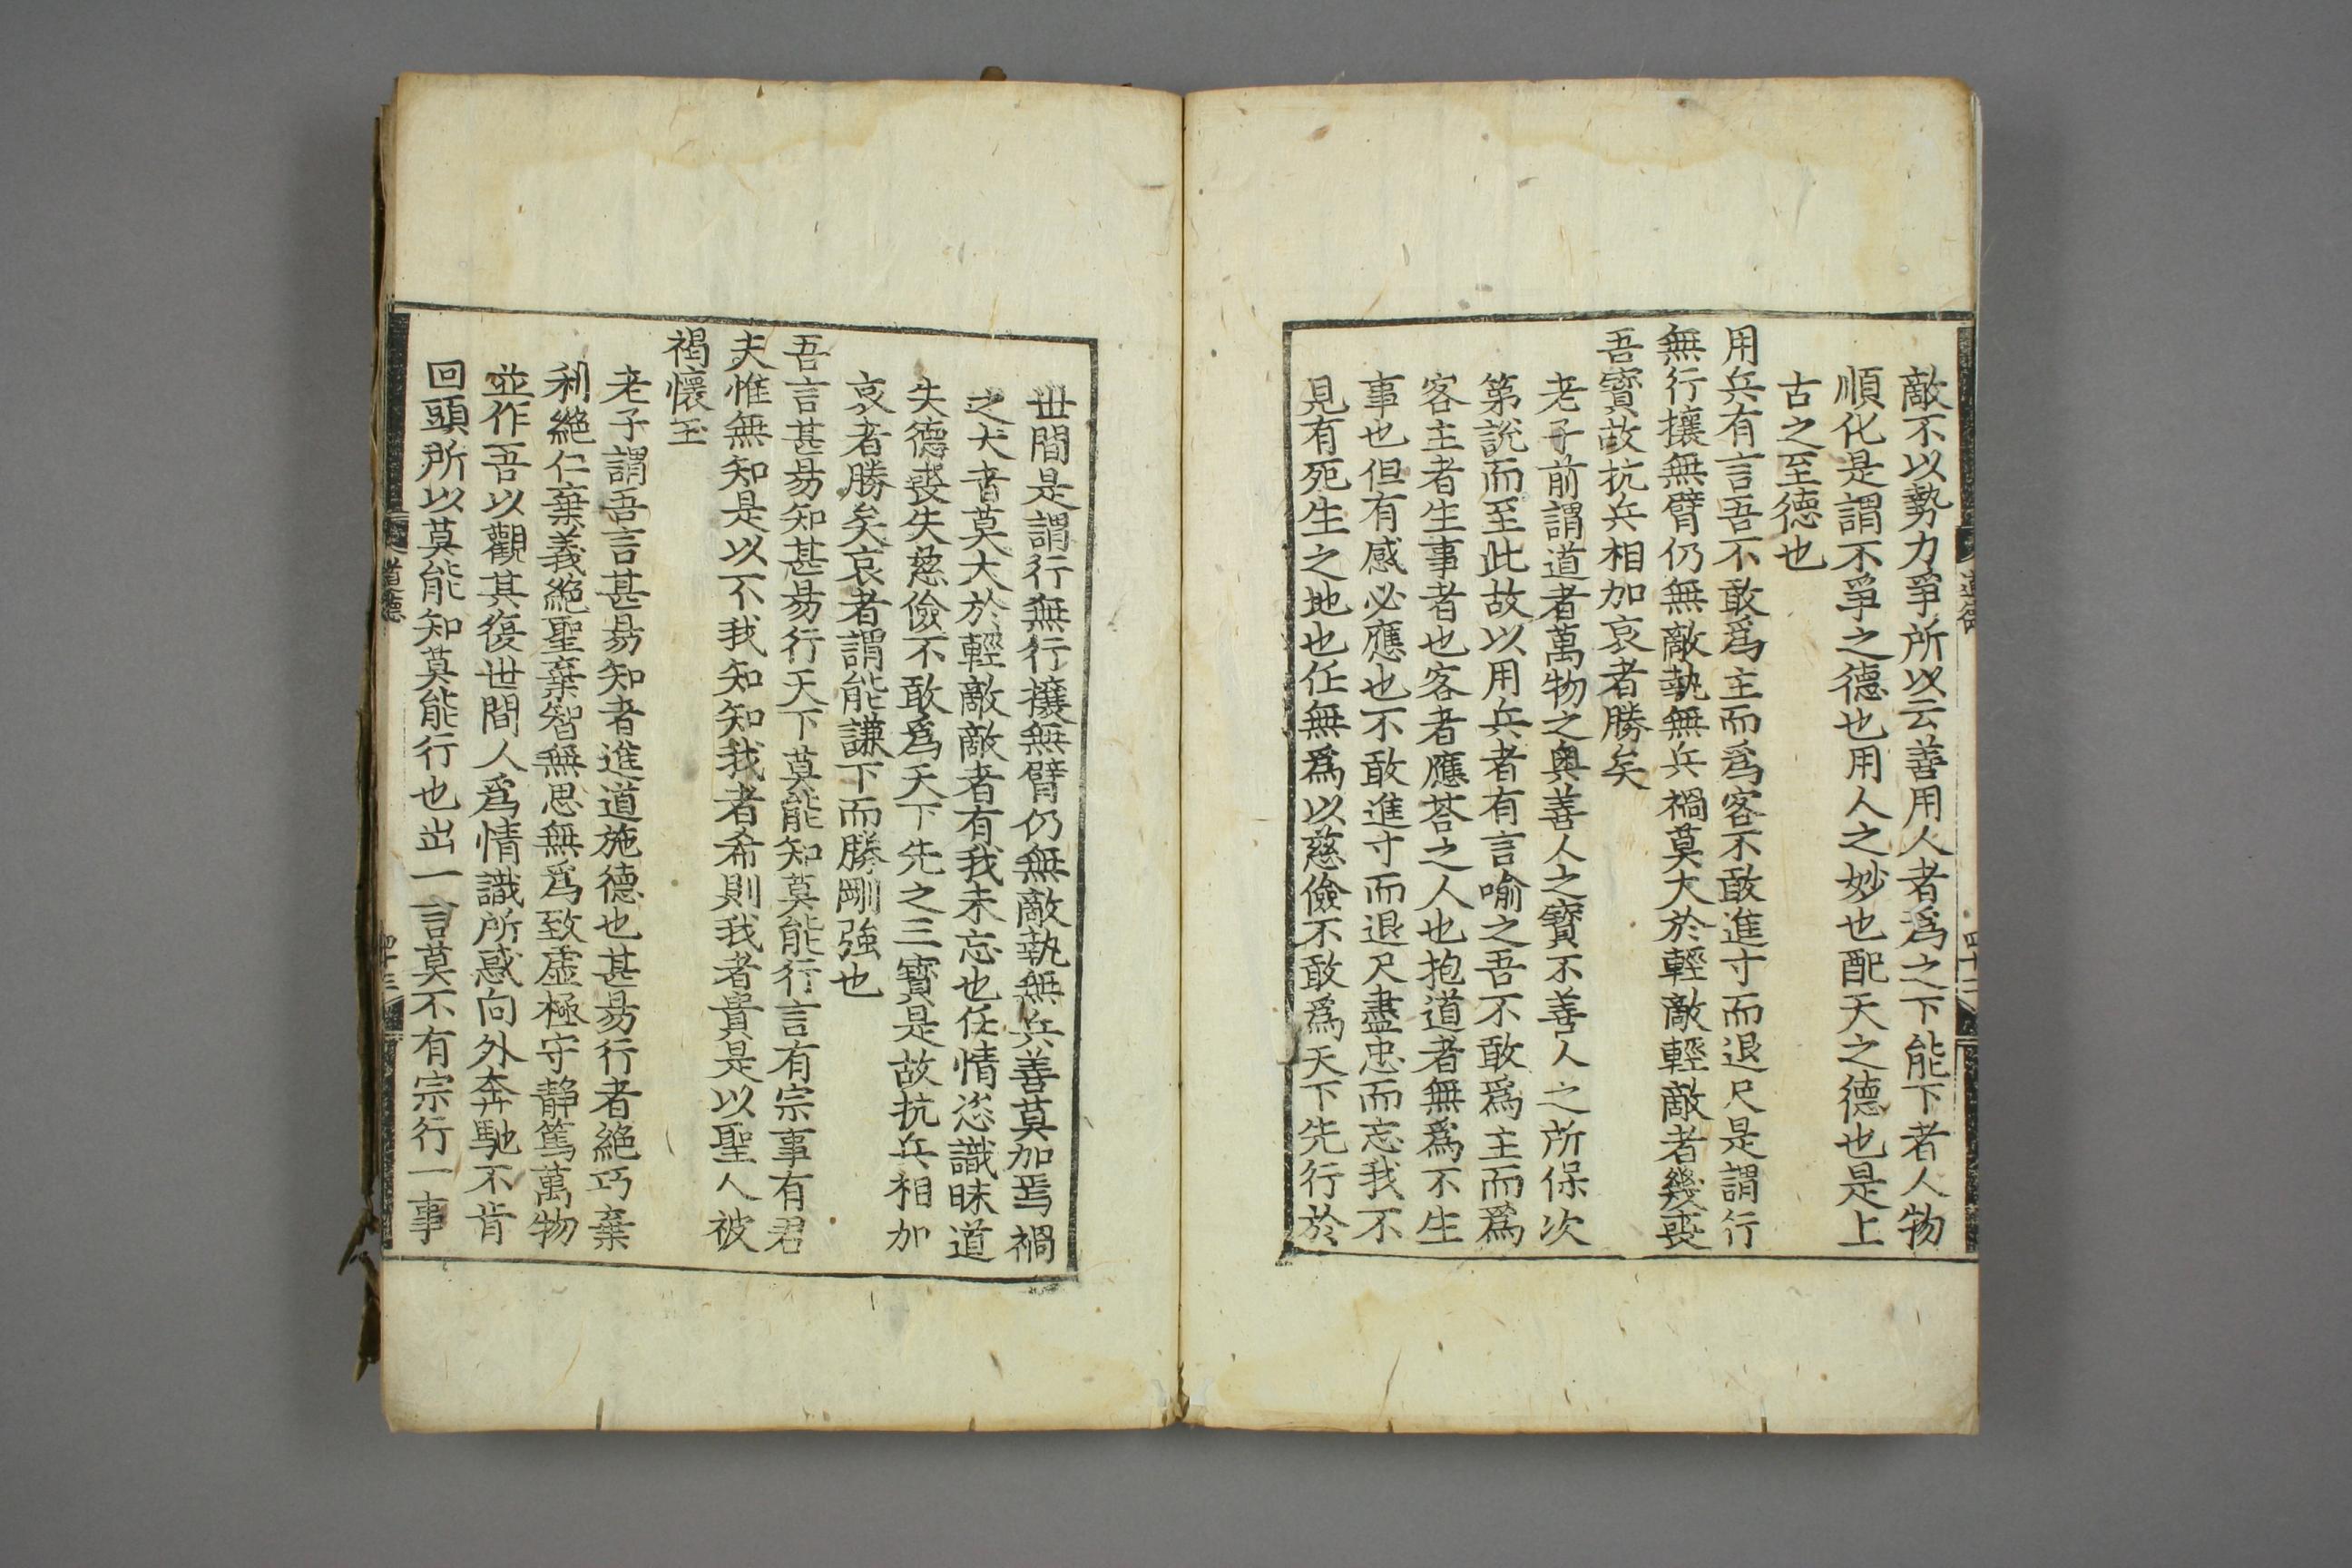 道德
四十二
敵不以勢力爭所以云善用人者爲之下能下者人物
順化是謂不爭之德也用人之妙也配天之德也是上
古之至德也
用兵有言吾不敢爲主而爲客不敢進寸而退尺是謂行
無行攘無臂仍無敵執無兵禍莫大於輕敵輕敵者幾喪
吾寶故抗兵相加哀者勝矣
老子前謂道者萬物之奧善人之寶不善人之所保次
第說而至此故以用兵者有言喻之吾不敢爲主而爲
客主者生事者也客者應荅之人也抱道者無爲不生
事也但有感必應也不敢進寸而退尺盡忠而忘我不
見有死生之地也任無爲以慈儉不敢爲天下先行於
世間是謂行無行攘無臂仍無敵執無兵善莫加焉禍
之大者莫大於輕敵敵者有我未忘也任情恣識昧道
失德喪失慈儉不敢爲天下先之三寶是故抗兵相加
哀者勝矣哀者謂能謙下而勝剛強也
吾言甚易知甚易行天下莫能知莫能行言有宗事有君
夫惟無知是以不我知知我者希則我者貴是以聖人被
褐懷玉
老子謂吾言甚易知者進道施德也甚易行者絕巧棄
利絕仁棄義絕聖棄智無思無爲致虛極守靜篤萬物
並作吾以觀其復世間人爲情識所惑向外奔馳不肯
回頭所以莫能知莫能行也出一言莫不有宗行一事
道德
四十三